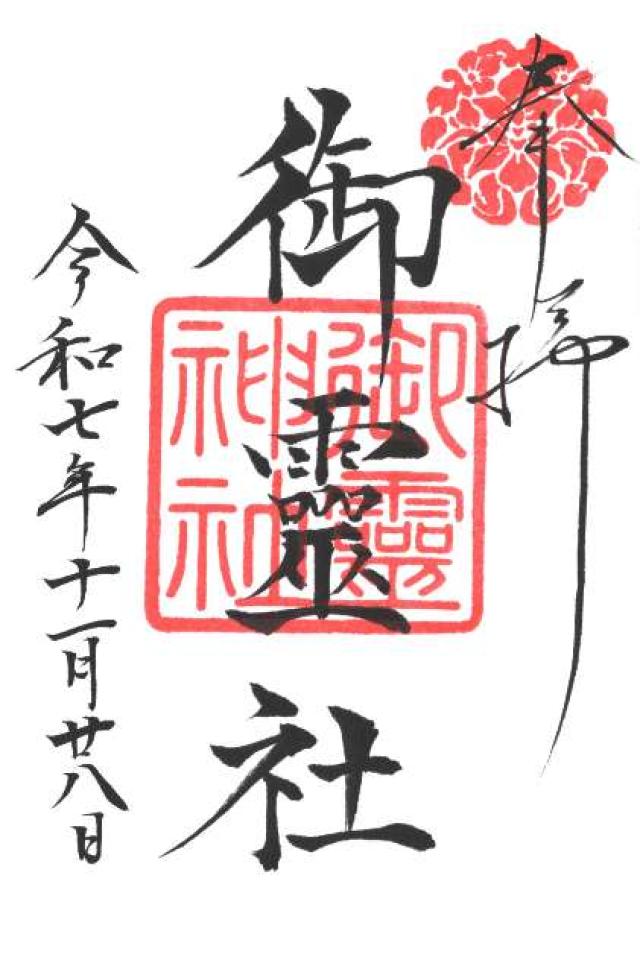 奉拝
御靈社
御靈神社
令和七年十一月廿八日